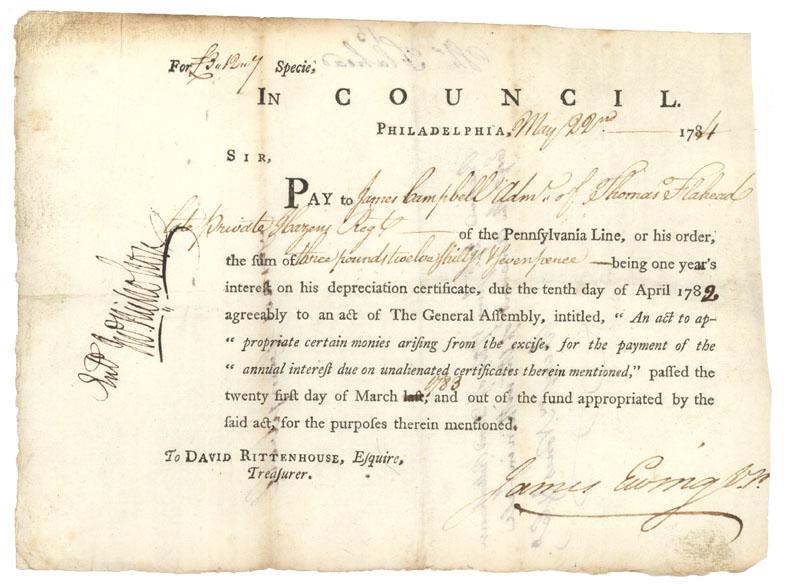 For £3 „ 12 „ 7 Specie,
IN COUNCIL.
PHILADELPHIA, May 22nd 1784
SIR,
PAY to James Campbell Admr. of Thomas Flahead
late private Hazens Regt of the Pennſylvania Line, or his order,
the ſum of three pounds twelve ſhillgs & ſeven pence —being one year's
intereſt on his depreciation certificate, due the tenth day of April 1782
agreeably to an act of The General Aſſembly, intitled, “ An act to ap-
“ propriate certain monies ariſing from the exciſe, for the payment of the
“ annual intereſt due on unalienated certificates therein mentioned,” paſſed the
twenty firſt day of March laſt, 1783 and out of the fund appropriated by the
ſaid act, for the purpoſes therein mentioned.
To DAVID RITTENHOUSE, Eſquire,
Treaſurer.
James Ewing V.P.
Jno Nicholson